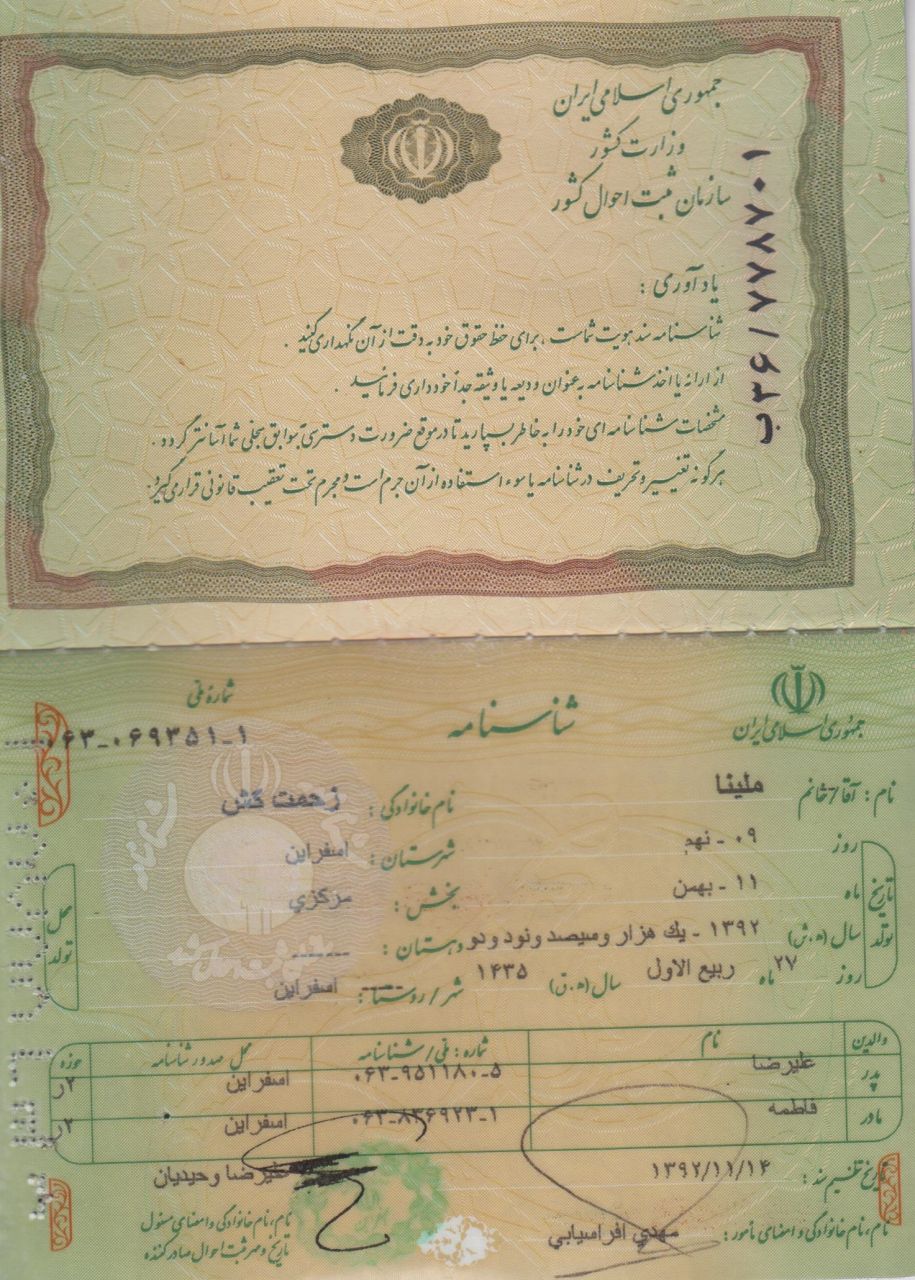 جمهوری اسلامی ایران
وزارت کشور
سازمان ثبت احوال کشور
ب۳۶/۷۷۸۷۰۱
یادآوری :
شناسنامه سند هویت شماست ، برای حفظ حقوق خود به دقت از آن نگهداری کنید .
از ارائه یا اخذ شناسنامه به عنوان ودیعه یا وثیقه جداً خودداری فرمائید .
مشخصات شناسنامه ای خود را به خاطر بسپارید تا در موقع ضرورت دسترسی به سوابق سجلی شما آسانتر گردد .
هرگونه تغییر و تحریف در شناسنامه یا سوء استفاده از آن جرم است و مجرم تحت تعقیب قانونی قرار می گیرد.
جمهوری اسلامی ایران
شناسنامه
شماره ملی
۰۶۳-۰۶۹۳۵۱-۱
نام : آقا/خانم ملینا نام خانوادگی : زحمت کش
تاریخ تولد
روز ۰۹ - نهم
ماه ۱۱ - بهمن
سال (ه.ش) ۱۳۹۲ - یك هزار وسیصد ونود ودو
روز ۲۷ ماه ربیع الاول سال (ه.ق) ۱۴۳۵
محل تولد
شهرستان : اسفراین
بخش : مرکزي
دهستان : -------
شهر / روستا : ----- اسفراین
والدین نام شماره : ملی / شناسنامه محل صدور شناسنامه حوزه
پدر علیرضا ۰۶۳-۹۵۱۱۸۰-۵ اسفراین ۲ر
مادر فاطمه ۰۶۳-۸۳۶۹۲۳-۱ اسفراین ۲ر
تاریخ تنظیم سند : ۱۳۹۲/۱۱/۱۴
علیرضا وحیدیان
نام، نام خانوادگی و امضای مأمور : مهدي افراسیابي
نام، نام خانوادگی و امضای مسئول
تاریخ و مهر ثبت احوال صادرکننده